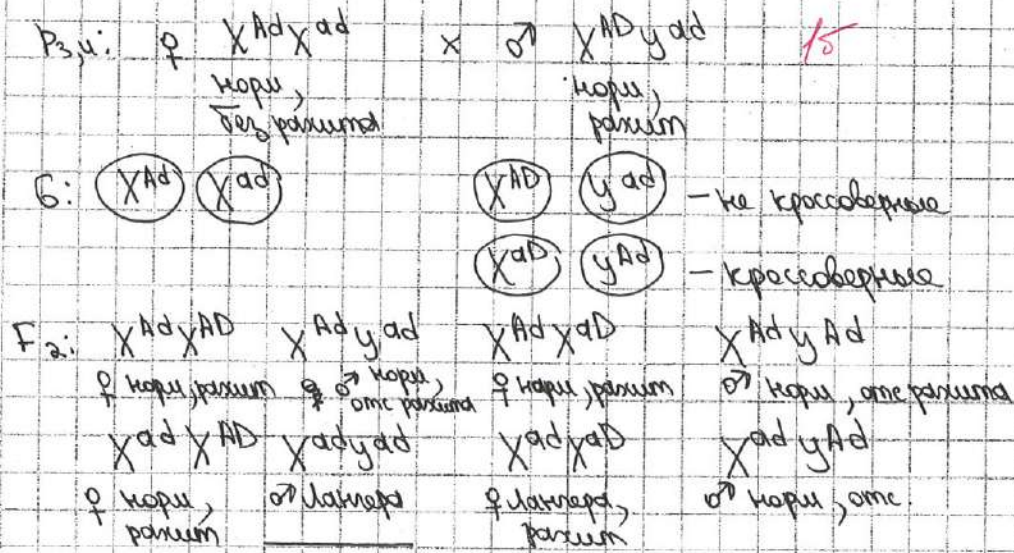 P₃,₄: ♀ X^Ad X^ad × ♂ X^AD y^ad 15
норм, норм,
без рахита рахит
G: X^Ad X^ad X^AD y^ad – не кроссоверные
X^aD y^Ad – кроссоверные
F₂: X^Ad X^AD X^Ad y^ad X^Ad X^aD X^Ad y^Ad
♀ норм, рахит ♂ норм, отс рахита ♀ норм, рахит ♂ норм, отс рахита
X^ad X^AD X^ad y^ad X^ad X^aD X^ad y^Ad
♀ норм, ♂ Лангера ♀ Лангера, ♂ норм, отс.
рахит рахит